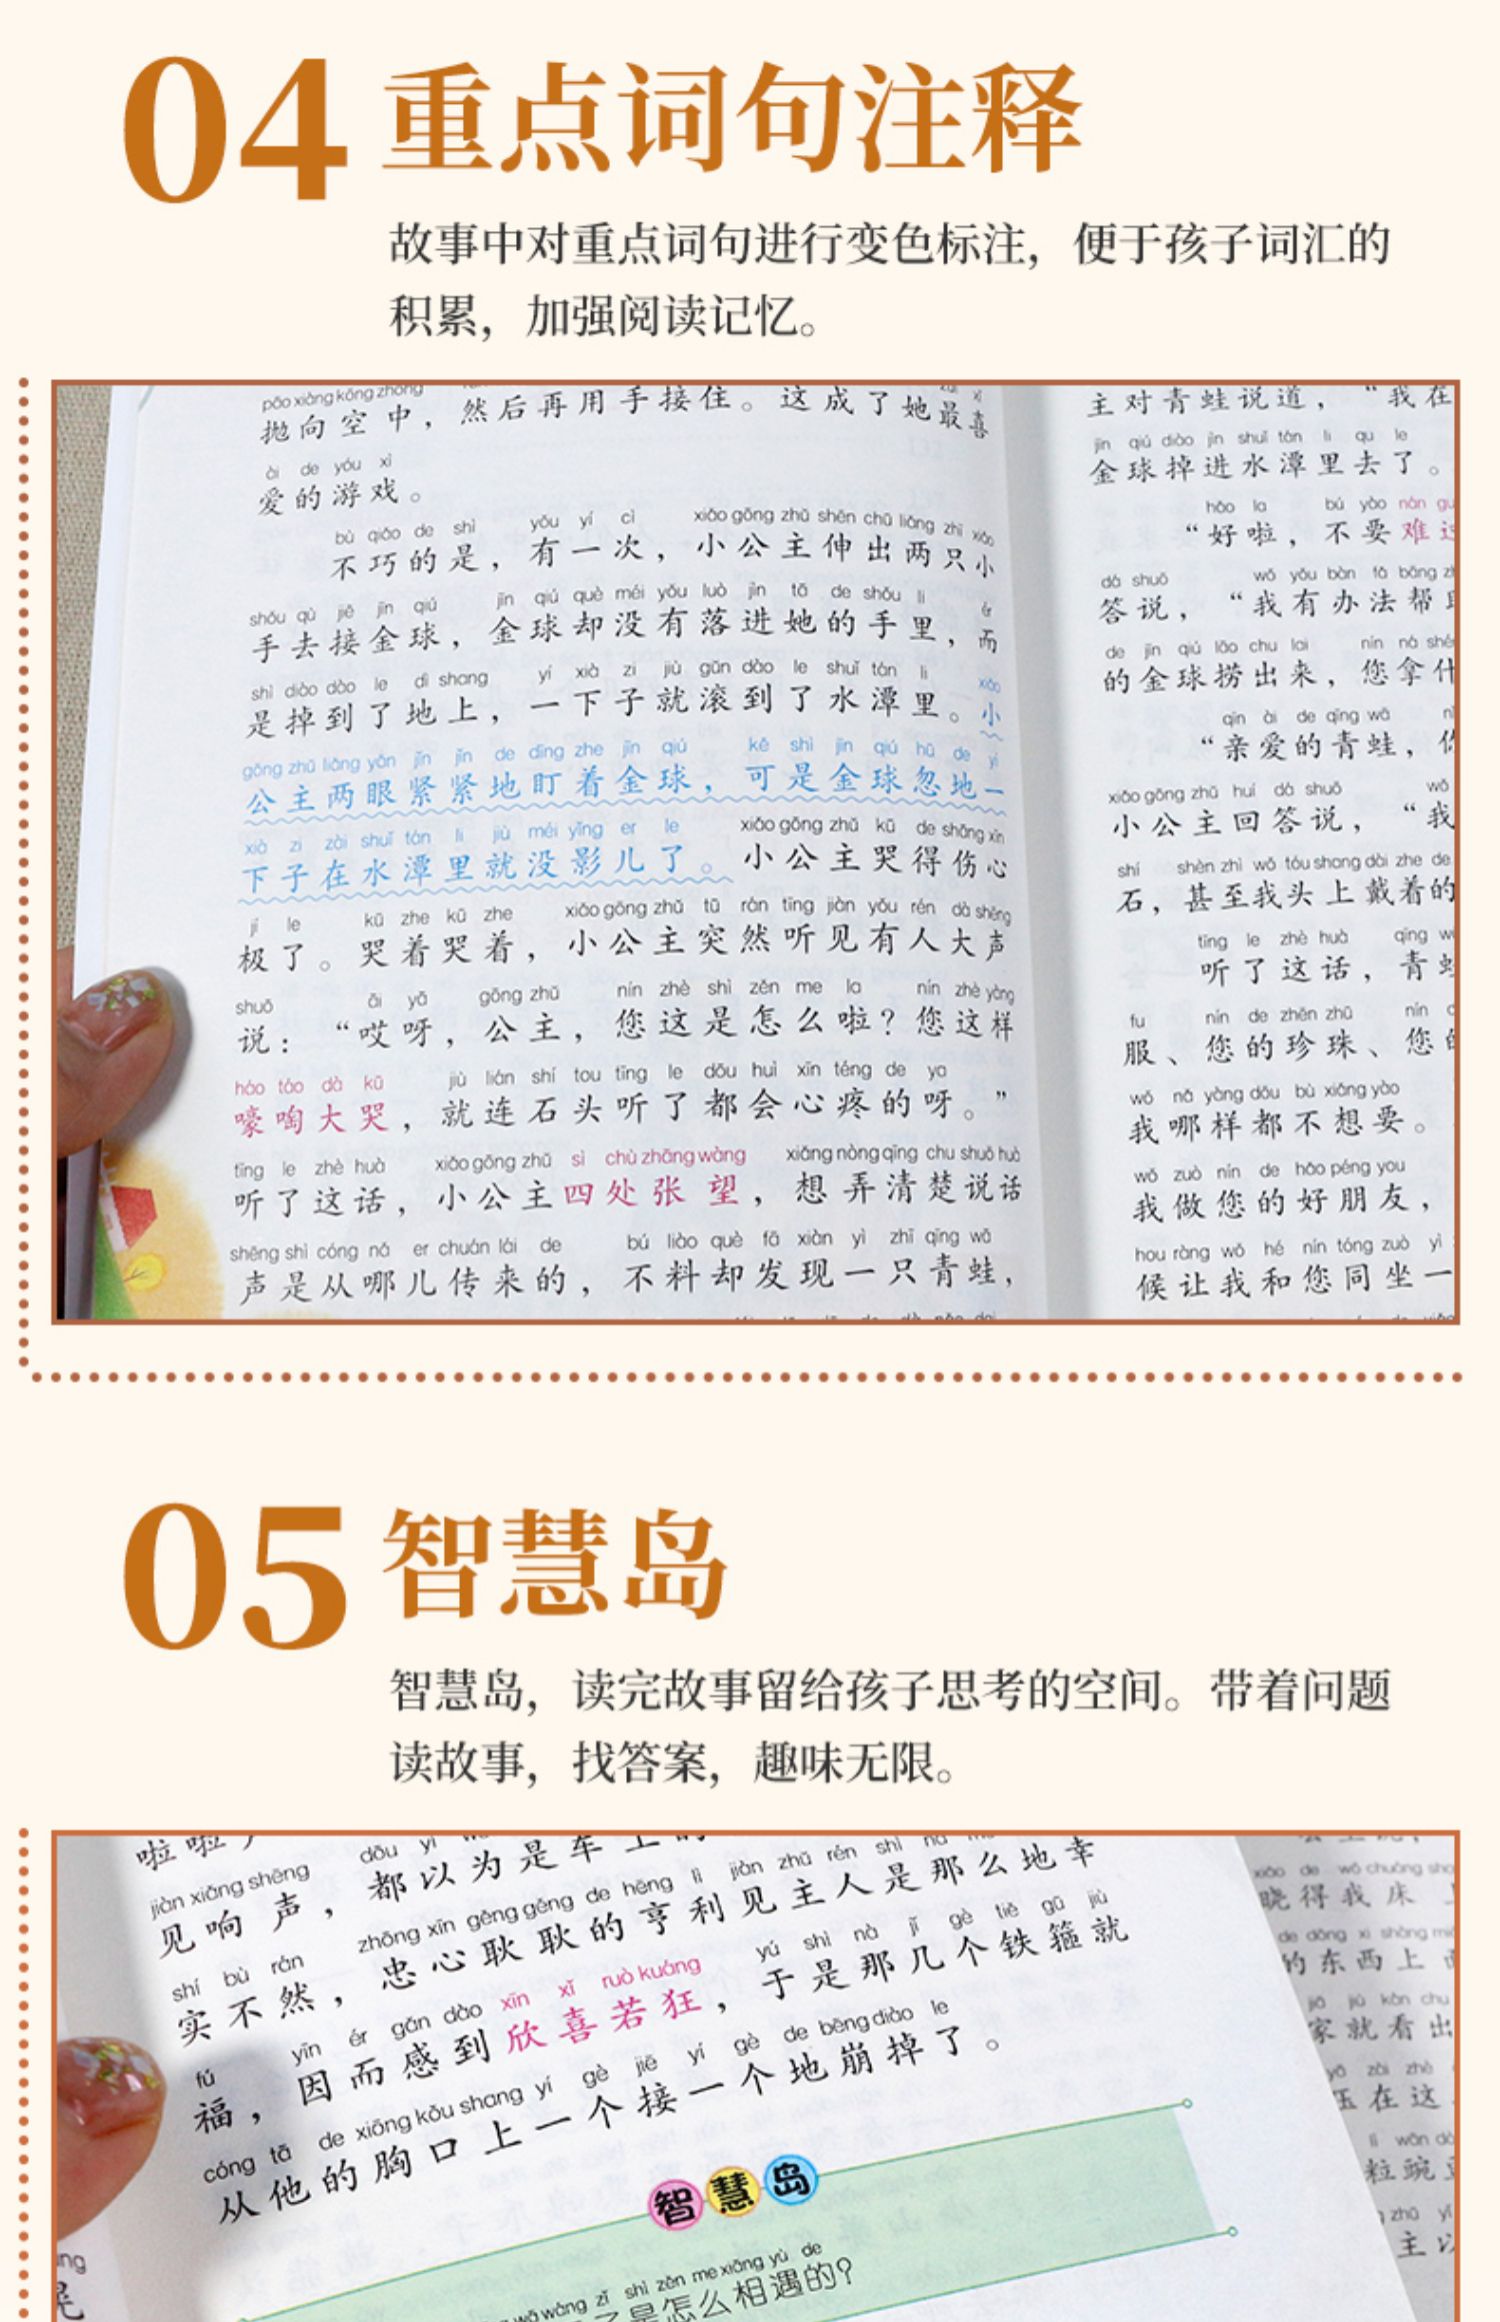 04 重点词句注释
故事中对重点词句进行变色标注，便于孩子词汇的
积累，加强阅读记忆。
pāo xiàng kōng zhōng
抛向空中，然后再用手接住。这成了她最喜
ài de yóu xì
爱的游戏。
bù qiǎo de shì yǒu yí cì xiǎo gōng zhǔ shēn chū liǎng zhī xiǎo
不巧的是，有一次，小公主伸出两只小
shǒu qù jiē jīn qiú jīn qiú què méi yǒu luò jìn tā de shǒu li ér
手去接金球，金球却没有落进她的手里，而
shì diào dào le dì shang yí xià zi jiù gǔn dào le shuǐ tán li xiǎo
是掉到了地上，一下子就滚到了水潭里。小
gōng zhǔ liǎng yǎn jǐn jǐn de dīng zhe jīn qiú kě shì jīn qiú hū de yí
公主两眼紧紧地盯着金球，可是金球忽地一
xià zi zài shuǐ tán li jiù méi yǐng er le xiǎo gōng zhǔ kū de shāng xīn
下子在水潭里就没影儿了。小公主哭得伤心
jí le kū zhe kū zhe xiǎo gōng zhǔ tū rán tīng jiàn yǒu rén dà shēng
极了。哭着哭着，小公主突然听见有人大声
shuō āi yā gōng zhǔ nín zhè shì zěn me la nín zhè yàng
说：“哎呀，公主，您这是怎么啦？您这样
háo táo dà kū jiù lián shí tou tīng le dōu huì xīn téng de ya
嚎啕大哭，就连石头听了都会心疼的呀。”
tīng le zhè huà xiǎo gōng zhǔ sì chù zhāng wàng xiǎng nòng qīng chu shuō huà
听了这话，小公主四处张望，想弄清楚说话
shēng shì cóng nǎ er chuán lái de bú liào què fā xiàn yì zhī qīng wā
声是从哪儿传来的，不料却发现一只青蛙，
主对青蛙说道，“我在
jīn qiú diào jìn shuǐ tán li qu le
金球掉进水潭里去了。
hǎo la bú yào nán
“好啦，不要难
dá shuō wǒ yǒu bàn fǎ bāng
答说，“我有办法帮
de jīn qiú lāo chu lai nín ná
的金球捞出来，您拿什
qīn ài de qīng wā
“亲爱的青蛙，
xiǎo gōng zhǔ huí dá shuō wǒ
小公主回答说，“我
shí shèn zhì wǒ tóu shang dài zhe de
石，甚至我头上戴着的
tīng le zhè huà qīng
听了这话，青
fu nín de zhēn zhū nín
服、您的珍珠、您
wǒ nǎ yàng dōu bù xiǎng yào
我哪样都不想要。
wǒ zuò nín de hǎo péng you
我做您的好朋友，
hou ràng wǒ hé nín tóng zuò yì
候让我和您同坐一
05 智慧岛
智慧岛，读完故事留给孩子思考的空间。带着问题
读故事，找答案，趣味无限。
都以为是车上
jiàn xiǎng shēng
见响声，
zhōng xīn gěng gěng de hēng lì jiàn zhǔ rén shì
忠心耿耿的亨利见主人是那么地幸
shí bù rán
实不然，
fú yīn ér gǎn dào xīn xǐ ruò kuáng yú shì nà jǐ gè tiě gū jiù
福，因而感到欣喜若狂，于是那几个铁箍就
cóng tā de xiōng kǒu shang yí gè jiē yí gè de bēng diào le
从他的胸口上一个接一个地崩掉了。
智慧岛
zǐ shì zěn me xiāng yù de
子是怎么相遇的？
晓得我床
的东西上
家就看出
在这
粒豌